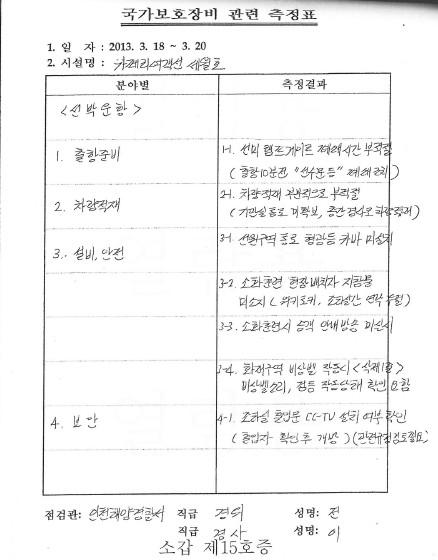 국가보호장비 관련 측정표
1. 일 자 : 2013. 3. 18 ~ 3. 20
2. 시설명 : 차례라여객선 세월호
분야별 측정결과
<선박운항>
1. 출항준비
1-1. 선미 램프게이트 폐쇄시간 부적절
(출항10분전 "선수문등" 폐쇄조치)
2. 차량적재
2-1. 차량적재 부분적으로 부적절
(기관실통로 미확보, 중간
3. 설비, 안전
3-1. 선원구역 통로 형광등 카바 미설치
3-2. 소화훈련 현장배치자 지참물
미소지 (워키토키, 조타실간 연락
3-3. 소화훈련시 승객 안내방송 미실시
3-4. 화재구역 비상벨 작동시 <삭제1회>
비상벨소리, 점등 작동상태 확인 요함
4. 보안
4-1. 조타실 출입문 CC-TV 설치 여부 확인
(출입자 확인후 개방) (관련규정검토필요)
점검관: 인천해양경찰서 직급 경위 성명: 전
직급 경사 성명: 이
소갑 제15호증